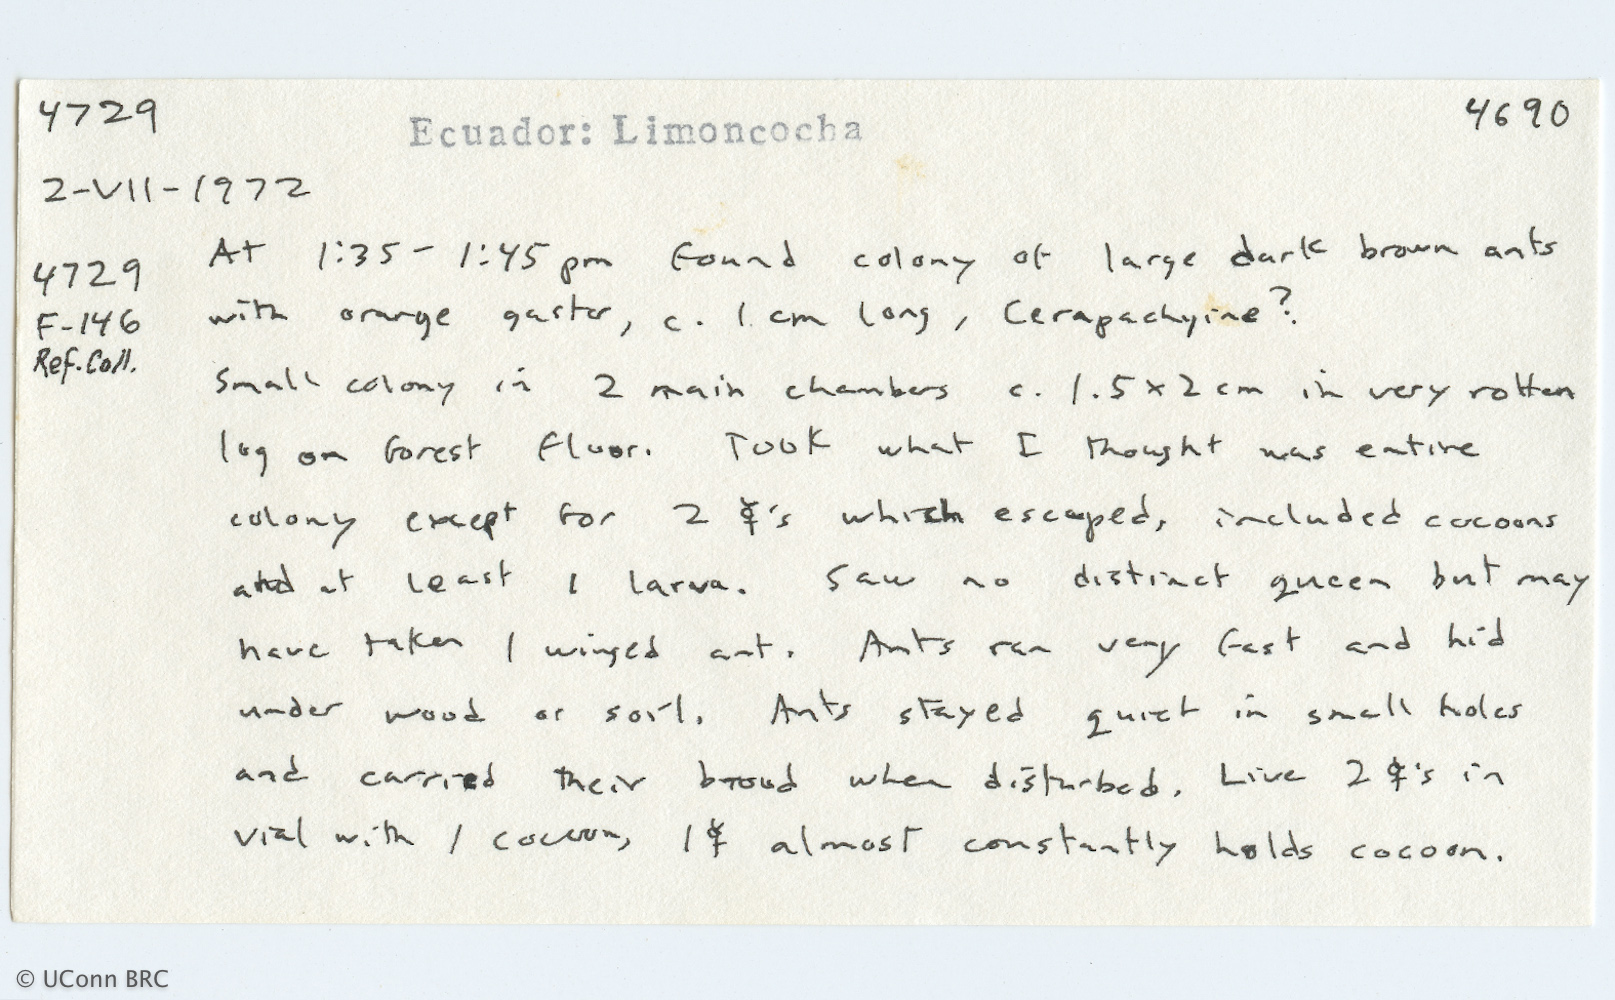 4729 Ecuador: Limoncocha 4690
2-VII-1972
4729 At 1:35-1:45 pm found colony of large dark brown ants
F-146 with orange gaster, c. 1 cm long, Cerapachyine?
Ref. Coll.
Small colony in 2 main chambers c. 1.5 x 2 cm in very rotten
log on forest floor. Took what I thought was entire
colony except for 2 ☿'s which escaped, included cocoons
and at least 1 larva. Saw no distinct queen but may
have taken 1 winged ant. Ants ran very fast and hid
under wood or soil. Ants stayed quiet in small holes
and carried their brood when disturbed. Live 2 ☿'s in
vial with 1 cocoon, 1 ☿ almost constantly holds cocoon.
© UConn BRC